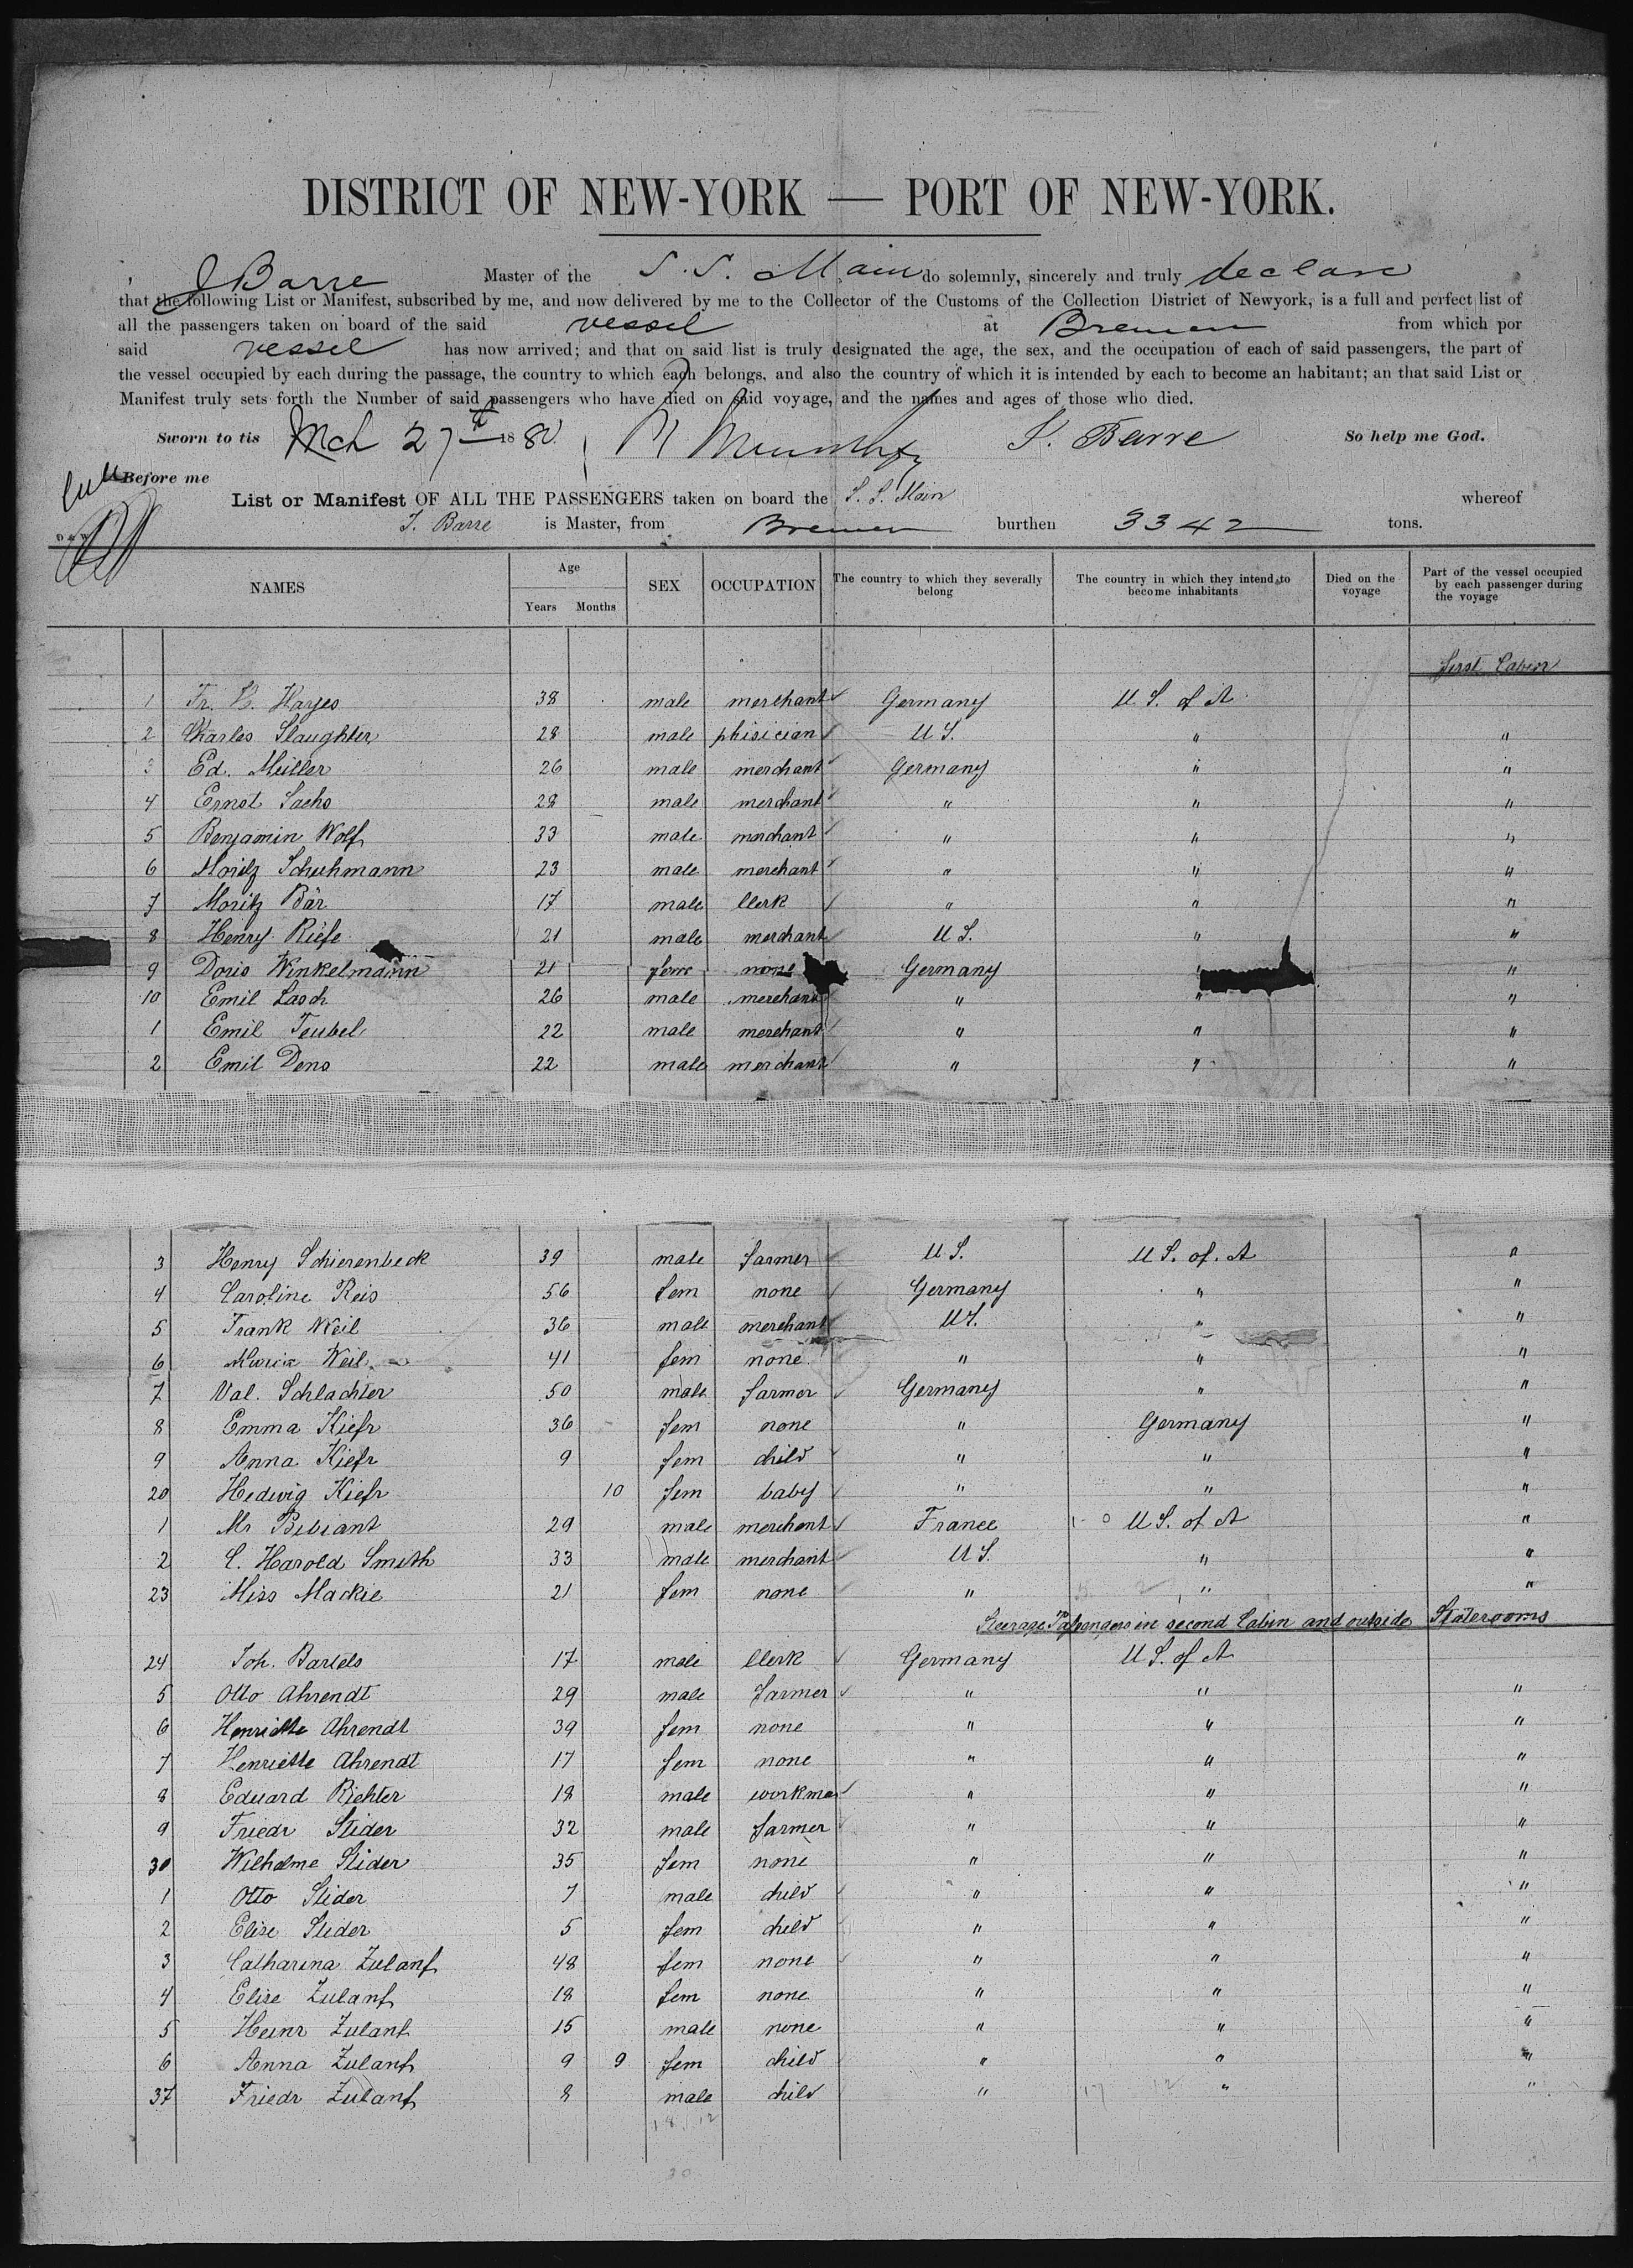 DISTRICT OF NEW-YORK — PORT OF NEW-YORK.
J Barre Master of the S. S. Main do solemnly, sincerely and truly declare
that the following List or Manifest, subscribed by me, and now delivered by me to the Collector of the Customs of the Collection District of Newyork, is a full and perfect list of
all the passengers taken on board of the said vessel at Bremen from which por
said vessel has now arrived; and that on said list is truly designated the age, the sex, and the occupation of each of said passengers, the part of
the vessel occupied by each during the passage, the country to which each belongs, and also the country of which it is intended by each to become an habitant; an that said List or
Manifest truly sets forth the Number of said passengers who have died on said voyage, and the names and ages of those who died.
Sworn to tis Mch 27th 1880 J. Barre So help me God.
Before me
List or Manifest OF ALL THE PASSENGERS taken on board the S. S. Main whereof
J. Barre is Master, from Bremen burthen 3342 tons.
NAMES Age Years Months SEX OCCUPATION The country to which they severally belong The country in which they intend to become inhabitants Died on the voyage Part of the vessel occupied by each passenger during the voyage
first Cabin
1 Fr. H. Hayes 38 male merchant Germany U S. of A
2 Charles Slaughter 28 male phisician U S. " "
3 Ed. Meiller 26 male merchant Germany " "
4 Ernst Sachs 28 male merchant " " "
5 Benjamin Wolf 33 male merchant " " "
6 Moritz Schuhmann 23 male merchant " " "
7 Moritz Bär 17 male Clerk " " "
8 Henry Riefe 21 male merchant U S. " "
9 Doris Winkelmann 21 fem none Germany " "
10 Emil Lasch 26 male merchant " " "
1 Emil Teubel 22 male merchant " " "
2 Emil Dens 22 male merchant " " "
3 Henry Schierenbeck 39 male farmer U S. U S. of. A "
4 Caroline Reis 56 fem none Germany " "
5 Frank Weil 36 male merchant U S. " "
6 Maria Weil 41 fem none " " "
7 Val. Schlachter 50 male farmer Germany " "
8 Emma Kiefr 36 fem none " Germany "
9 Anna Kiefr 9 fem child " " "
20 Hedwig Kiefr 10 fem baby " " "
1 Mr Bibiant 29 male merchant France U S. of A "
2 C. Harold Smith 33 male merchant U S. " "
23 Miss Mackie 21 fem none " " "
Steerage Passengers in second Cabin and outside Staterooms
24 Joh. Bartels 17 male Clerk Germany U S. of A
5 Otto Ahrendt 29 male farmer " " "
6 Henriette Ahrendt 39 fem none " " "
7 Henriette Ahrendt 17 fem none " " "
8 Eduard Richter 18 male workman " " "
9 Friedr Slider 32 male farmer " " "
30 Wilhelme Slider 35 fem none " " "
1 Otto Slider 7 male child " " "
2 Elise Slider 5 fem child " " "
3 Catharina Zulanf 48 fem none " " "
4 Elise Zulanf 18 fem none " " "
5 Heinr Zulanf 15 male none " " "
6 Anna Zulanf 9 9 fem child " " "
37 Friedr Zulanf 8 male child " 17 12 " "
18 12